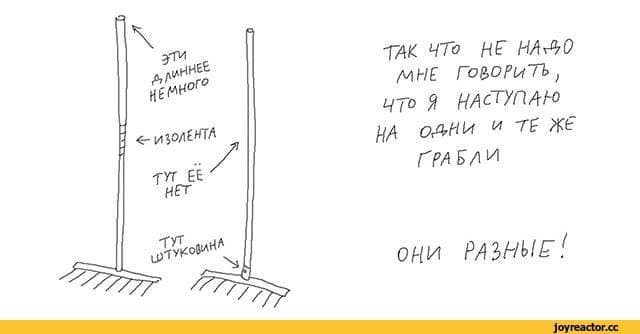 ЭТИ
ДЛИННЕЕ
НЕМНОГО
ИЗОЛЕНТА
ТУТ ЕЁ
НЕТ
ТУТ
ШТУКОВИНА
ТАК ЧТО НЕ НАДО
МНЕ ГОВОРИТЬ,
ЧТО Я НАСТУПАЮ
НА ОДНИ И ТЕ ЖЕ
ГРАБЛИ
ОНИ РАЗНЫЕ!
joyreactor.cc